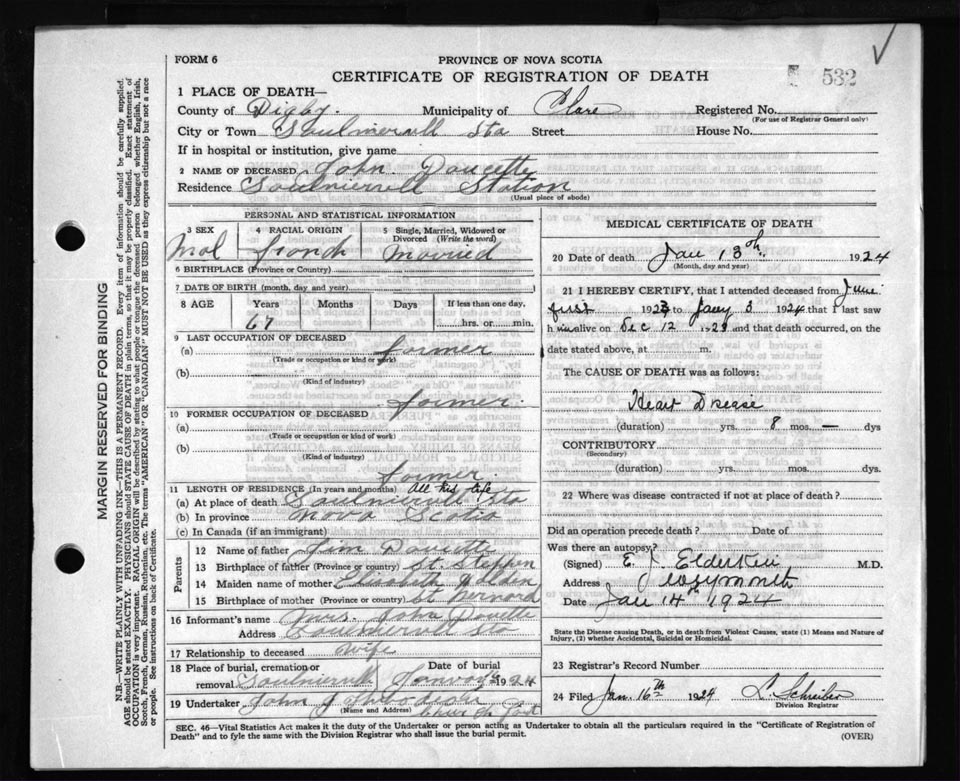 FORM 6
PROVINCE OF NOVA SCOTIA
CERTIFICATE OF REGISTRATION OF DEATH
532
1 PLACE OF DEATH—
County of Digby. Municipality of Clare Registered No.
(For use of Registrar General only)
City or Town Saulnierville Sta Street House No.
If in hospital or institution, give name
2 NAME OF DECEASED John Doucette
Residence Saulnierville Station
(Usual place of abode)
MARGIN RESERVED FOR BINDING
N.B.—WRITE PLAINLY WITH UNFADING INK—THIS IS A PERMANENT RECORD. Every item of information should be carefully supplied.
AGE should be stated EXACTLY. PHYSICIANS should STATE CAUSE OF DEATH in plain terms, so that it may be properly classified. Exact statement of
OCCUPATION is very important. RACIAL ORIGIN will be described by stating to what people or tongue the deceased person belonged whether English, Irish,
Scotch, French, German, Russian, Ruthenian, etc. The terms "AMERICAN" OR "CANADIAN" MUST NOT BE USED as they express citizenship but not a race
or people. See instructions on back of Certificate.
PERSONAL AND STATISTICAL INFORMATION
3 SEX
4 RACIAL ORIGIN
5 Single, Married, Widowed or Divorced (Write the word)
Mal french Married
6 BIRTHPLACE (Province or Country)
7 DATE OF BIRTH (month, day and year)
8 AGE Years Months Days If less than one day,
67 hrs. or min.
9 LAST OCCUPATION OF DECEASED
(a) farmer
(Trade or occupation or kind of work)
(b)
(Kind of industry)
farmer.
10 FORMER OCCUPATION OF DECEASED
(a)
(Trade or occupation or kind of work)
(b)
(Kind of industry)
farmer.
11 LENGTH OF RESIDENCE (In years and months) All his life
(a) At place of death Saulnierville Sta
(b) In province Nova Scotia
(c) In Canada (if an immigrant)
Parents
12 Name of father Jim Doucette
13 Birthplace of father (Province or Country) St. Stephen
14 Maiden name of mother Elisabeth
15 Birthplace of mother (Province or Country) St Bernard
16 Informant's name Mrs. John Doucette
Address Saulnierville Sta
17 Relationship to deceased Wife
18 Place of burial, cremation or removal Date of burial
Saulnierville 1924
19 Undertaker John
(Name and Address)
MEDICAL CERTIFICATE OF DEATH
20 Date of death Jan 13th. 1924
(Month, day and year)
21 I HEREBY CERTIFY, that I attended deceased from June
first 1923 to Jany 3 1924 that I last saw
him alive on Dec 12 1923 and that death occurred, on the
date stated above, at m.
The CAUSE OF DEATH was as follows:
Heart Disease
(duration) yrs. 8 mos. — dys
CONTRIBUTORY
(Secondary)
(duration) yrs. mos. dys.
22 Where was disease contracted if not at place of death?
Did an operation precede death? Date of
Was there an autopsy?
(Signed) E. J. Elderkin M.D.
Address Weymouth
Date Jan 14th 1924
State the Disease causing Death, or in death from Violent Causes, state (1) Means and Nature of
Injury, (2) whether Accidental, Suicidal or Homicidal.
23 Registrar's Record Number
24 Filed Jan. 16th 1924 L. Schreiber
Division Registrar
SEC. 46—Vital Statistics Act makes it the duty of the Undertaker or person acting as Undertaker to obtain all the particulars required in the "Certificate of Registration of
Death" and to fyle the same with the Division Registrar who shall issue the burial permit.
(OVER)